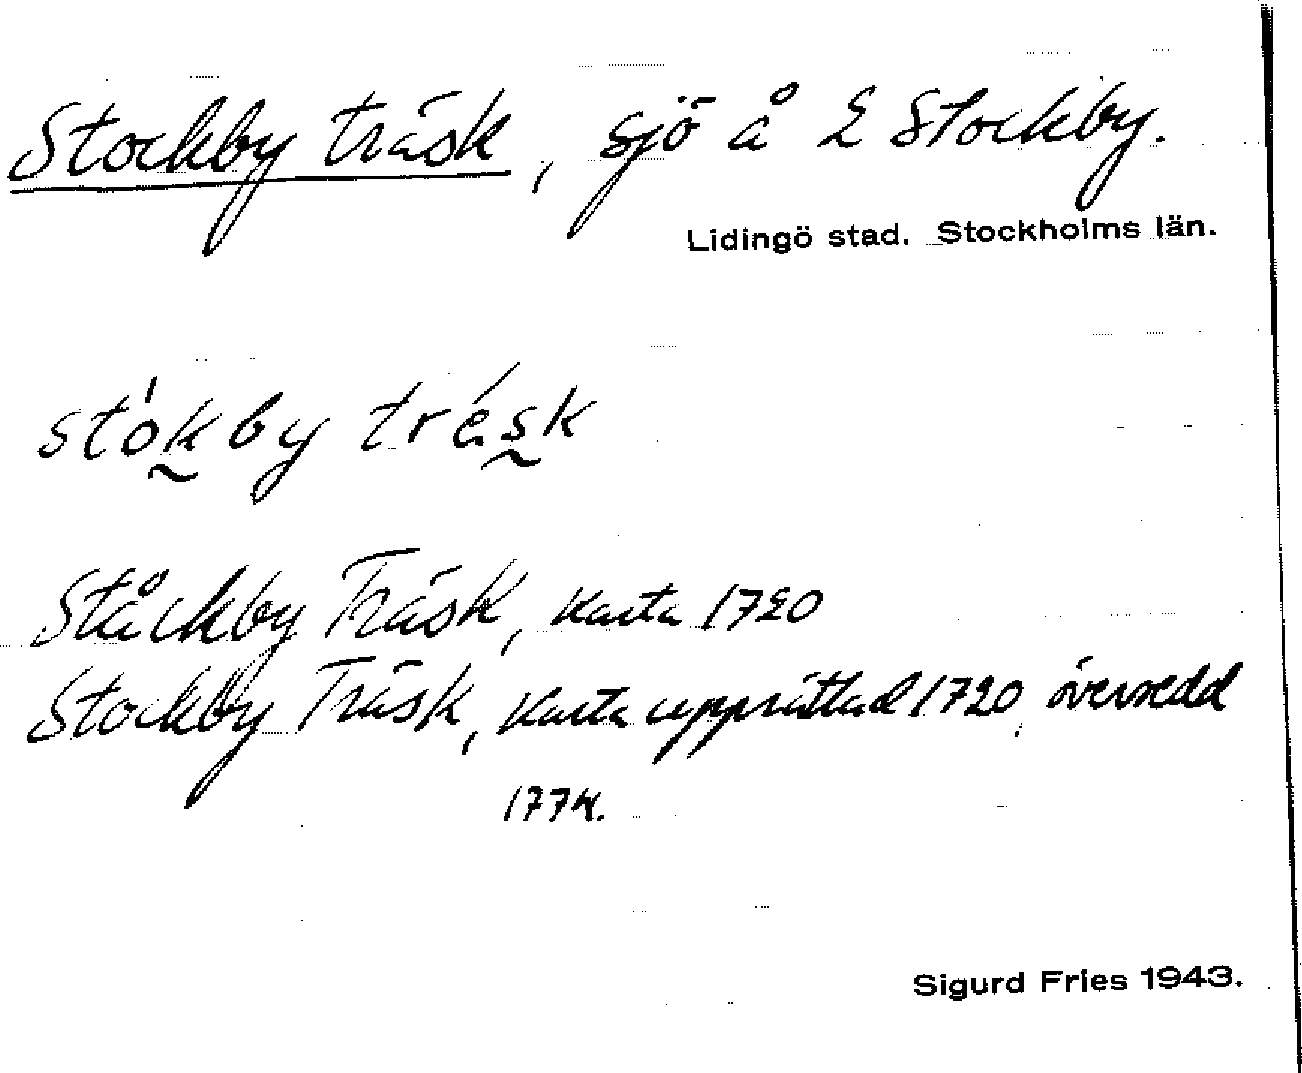 Stockby träsk, sjö å L Stockby.
Lidingö stad. Stockholms län.
stókby trésk
Ståckby Träsk, Karta 1720
Stockby Träsk, Karta upprättad 1720, översedd
1774.
Sigurd Fries 1943.